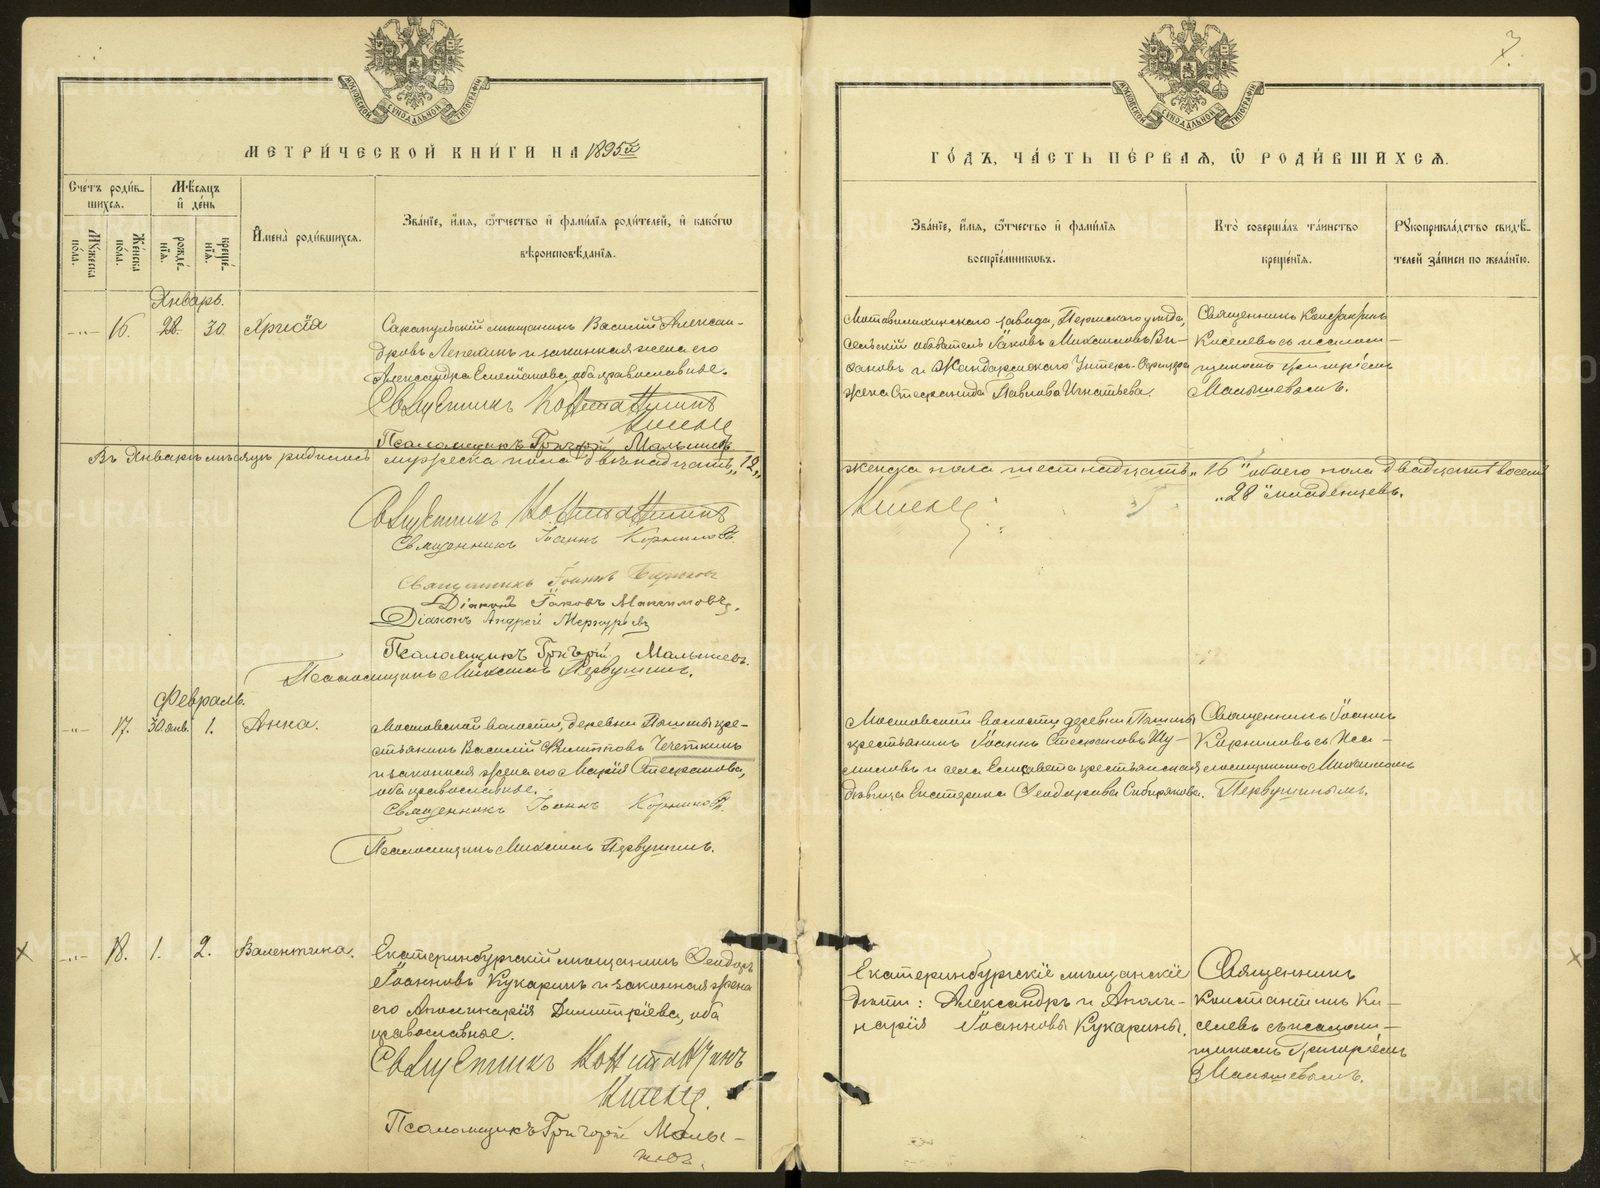 МОСКОВСКОЙ СѴНОДАЛЬНОЙ ТИПОГРАФІИ
МЕТРИ́ЧЕСКОЙ КНИ́ГИ НА 1895й
Счетъ роди́вшихся.
Мѣ́сяцъ и҆ де́нь
Мꙋ́жеска по́ла.
Же́нска по́ла.
рожде́нїѧ.
креще́нїѧ.
И҆мена̀ роди́вшихся.
Зва́нїе, и҆́мѧ, ѻ҆́тчество и҆ фами́лїѧ роди́телей, и҆ како́гѡ
вѣроисповѣ́данїѧ.
Январь.
16. 28. 30 Хрисія
Сарапульскій мѣщанинъ Василій Александровъ Лепихинъ и законная жена его
Александра Евлампіева, оба православные.
Священникъ Константинъ
Киселевъ
Псаломщикъ Григорій Малышевъ
Въ Январѣ мѣсяцѣ родилось мужеска пола двѣнадцать „12„
Священникъ Константинъ
Священникъ Іоаннъ Корниловъ.
Священникъ Іоаннъ
Діаконъ Іаковъ Максимовъ.
Діаконъ Андрей Меркурьевъ
Псаломщикъ Григорій Малышевъ.
Псаломщикъ Михаилъ Первушинъ.
Февраль.
17. 30 янв. 1. Анна.
Мостовской волости, деревни Пышмы кре-
стьянинъ Василій Филипповъ Чечеткинъ
и законная жена его Марія Стефанова,
оба православные.
Священникъ Іоаннъ Корниловъ.
Псаломщикъ Михаилъ Первушинъ.
18. 1. 2. Валентина.
Екатеринбургскій мѣщанинъ Ѳеодоръ
Іоанновъ Кукаринъ и законная жена
его Аполинарія Димитріева, оба
православные.
Священникъ Константинъ
Киселевъ.
Псаломщикъ Григорій Малы-
шевъ.
3.
МОСКОВСКОЙ СѴНОДАЛЬНОЙ ТИПОГРАФІИ
ГО́ДЪ, ЧА́СТЬ ПЕ́РВАЯ, Ѽ РОДИ́ВШИХСѦ.
Зва́нїе, и҆́мѧ, ѻ҆́тчество и҆ фами́лїѧ
воспрїе́мникѡвъ.
Кто̀ соверша́лъ та́инство
креще́нїѧ.
Рꙋкоприкла́дство свидѣ́-
телей за́писи по жела́нїю.
Мотовилихинскаго завода, Пермскаго уѣзда,
сельскій обыватель Іаковъ Михаиловъ
и Жандармскаго Унтеръ-Офицера
жена Стефанида Павлова Игнатьева.
Священникъ Константинъ
Киселевъ съ псалом-
щикомъ Григоріемъ
Малышевымъ.
женска пола шестнадцать „16" обоего пола двадцать восемь
„28" младенцевъ.
Киселевъ
Мостовской волости, деревни Пышмы
крестьянинъ Іоаннъ Стефановъ
и села Елизавета крестьянская
дѣвица Екатерина Ѳеодорова Сибирякова.
Священникъ Іоаннъ
Корниловъ съ пса-
ломщикомъ Михаиломъ
Первушинымъ.
Екатеринбургскіе мѣщанскіе
дѣти: Александръ и Аполи-
нарія Іоанновы Кукарины.
Священникъ
Константинъ Ки-
селевъ съ псалом-
щикомъ Григоріемъ
Малышевымъ.
METRIKI.GASO-URAL.RU